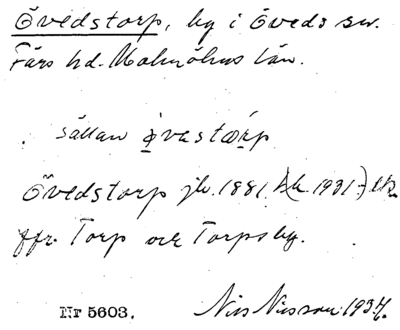 Övedstorp, by i Öveds sn.
Färs hd. Malmöhus län.
sällan
Övedstorp jb. 1881. 1931.
jfr. Torp och Torpsby.
Nr 5603. Nils Nilsson 1934.